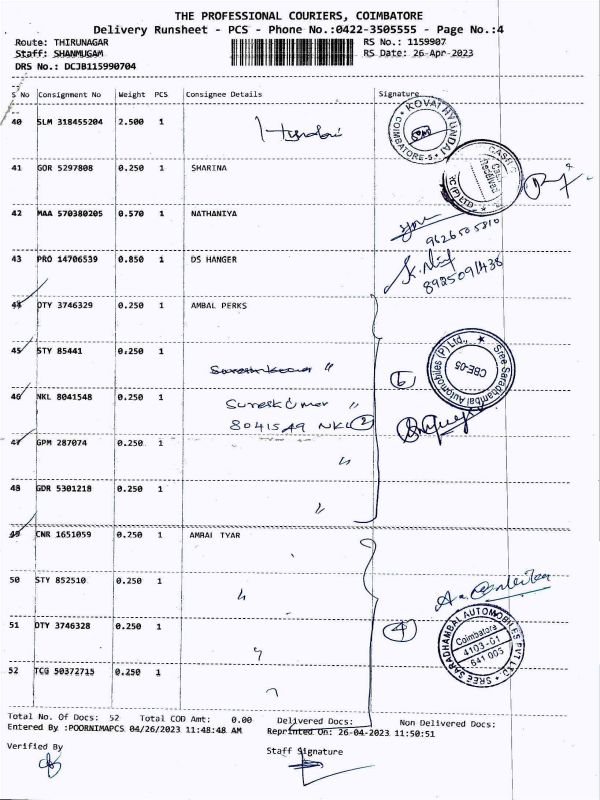 THE PROFESSIONAL COURIERS, COIMBATORE
Delivery Runsheet - PCS - Phone No.:0422-3505555 - Page No.:4
Route: THIRUNAGAR RS No.: 1159907
Staff: SHANMUGAM RS Date: 26-Apr-2023
DRS No.: DCJB115990704
S No Consignment No Weight PCS Consignee Details Signature
40 SLM 318455204 2.500 1 Hyundai
KOVAI HYUNDAI COIMBATORE-5
41 GOR 5297808 0.250 1 SHARINA
Cash Received
(P) LTD
42 MAA 570380205 0.570 1 NATHANIYA
9626505810
43 PRO 14706539 0.850 1 DS HANGER
8925091438
44 DTY 3746329 0.250 1 AMBAL PERKS
45 STY 85441 0.250 1 "
Sree Saradhambal Automobiles (P) Ltd., CBE-05
46 NKL 8041548 0.250 1 Sureskumar "
8041549 NKL 2
47 GPM 287074 0.250 1 "
48 GDR 5301218 0.250 1 "
49 CNR 1651059 0.250 1 AMBAI TYAR
50 STY 852510 0.250 1 "
51 DTY 3746328 0.250 1 " 4
SREE SARADHAMBAL AUTOMOBILES PVT LTD. Coimbatore 4103-G1 641 005
52 TCG 50372715 0.250 1 "
Total No. Of Docs: 52 Total COD Amt: 0.00 Delivered Docs: Non Delivered Docs:
Entered By :POORNIMAPCS 04/26/2023 11:48:48 AM Reprinted On: 26-04-2023 11:50:51
Verified By Staff Signature